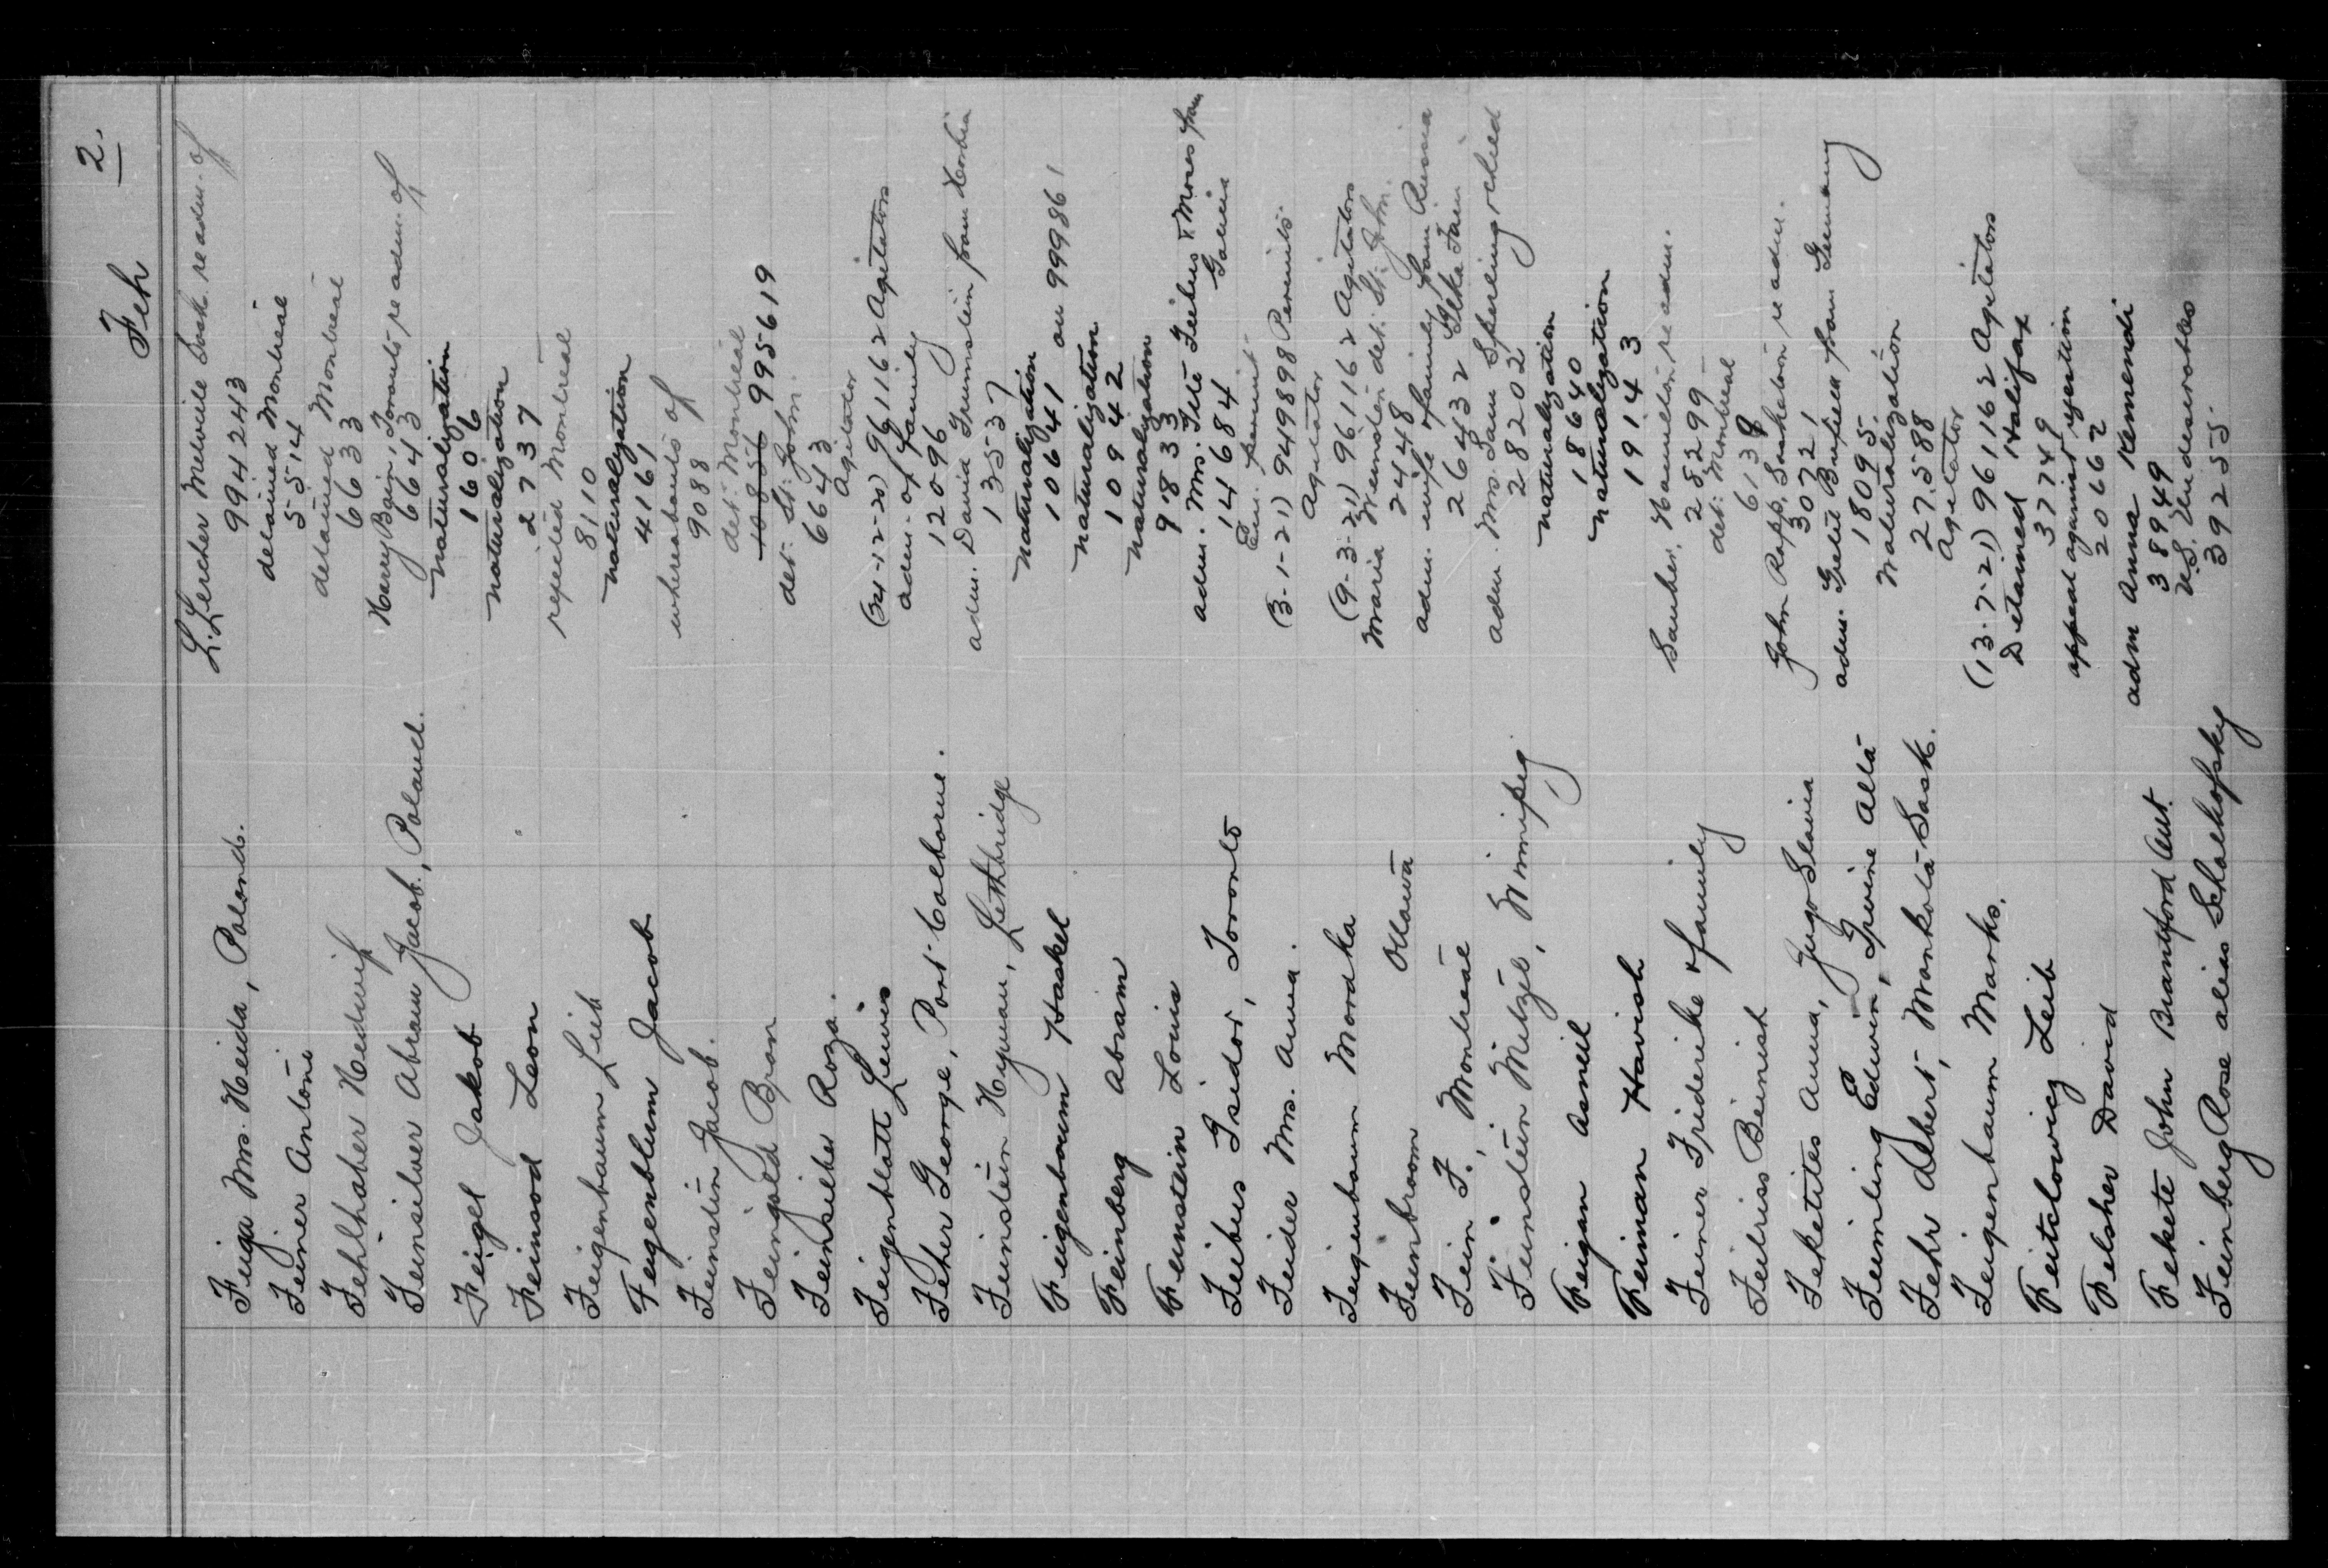 Feh 2.
L. Lercher Melville Sask. re adm. of
Feiga Mrs. Heida, Poland. 994243
detained Montreal
Feiner Antoni 5514
detained Montreal
Fehlhaber Hedwig 6633
Harry Bain, Toronto re adm. of
Feinsilver Abram Jacob., Poland. 6643
naturalization
Feigel Jakob 1606
naturalization
Feinsod Leon 2737
rejected Montreal
Feigenbaum Leib 8110
naturalization
Feigenblum Jacob 4161
whereabouts of
Feinstein Jacob. 9088
det. Montreal
Feingold Bron 995619
det. St. John.
Feinsilber Roza. 6643
Agitator
Feigenblatt Lewis (24-12-20) 961162 Agitators
adm. of family
Feher George, Port Colborne. 12096
adm. David Grunstein from
Feinstein Hyman, Lethbridge 13537
naturalization
Feigenbaum Haskel 10641 on 999861
naturalization
Feinberg Abram 10942
naturalization
Feinstein Louis 9833
adm. Mrs. Feibus & Moses from
Feibus Isidor, Toronto 14684 Galicia
Em. permit
Feider Mrs. Anna. (3-1-21) 949898 Permits
Agitator
Feigenbaum Mordka (9-3-21) 961162 Agitators
Maria Weinstein det. St. John.
Feinbroom Ottawa 24448
adm. wife & family from Russia
Fein F., Montreal 26432
adm. Mrs. Sam Sperling & child
Feinstein Mitzel, Winnipeg 28202
naturalization
Feigan Asneil 18640
naturalization
Feiman Havish 19143
Hamilton re adm.
Feiner Friderike & family 28299
det. Montreal
Feitriss Beinish 6138
John Rapp, Saskatoon re adm.
Feketites Anna, Jugo Slavia 30721
adm. from Germany
Feimling Edwin, Irvine Alta 18095
Naturalization
Fehr Albert, Mankota Sask. 27588
Agitator
Feigenbaum Marks. (13-7-21) 961162 Agitators
Detained Halifax
Feitclowicz Leib 37749
appeal against rejection
Felsher David 20662
adm Anna Kemendi
Fekete John Brantford Ont. 38949
U.S. Undesirables
Feinberg Rose alias 39255